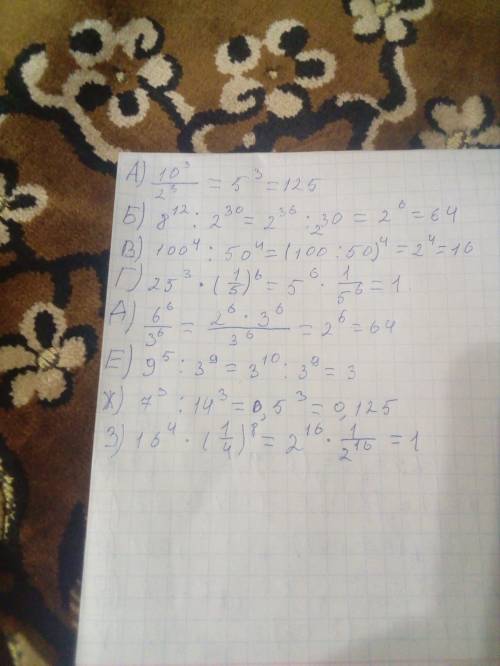 А) 10³/2³ = 5³ = 125
Б) 8¹² : 2³⁰ = 2³⁶ : 2³⁰ = 2⁶ = 64
В) 100⁴ : 50⁴ = (100 : 50)⁴ = 2⁴ = 16
Г) 25³ · (1/5)⁶ = 5⁶ · 1/5⁶ = 1
Д) 6⁶/3⁶ = 2⁶ · 3⁶/3⁶ = 2⁶ = 64
Е) 9⁵ : 3⁹ = 3¹⁰ : 3⁹ = 3
Ж) 7³ : 14³ = 0,5³ = 0,125
З) 16⁴ · (1/4)⁸ = 2¹⁶ · 1/2¹⁶ = 1